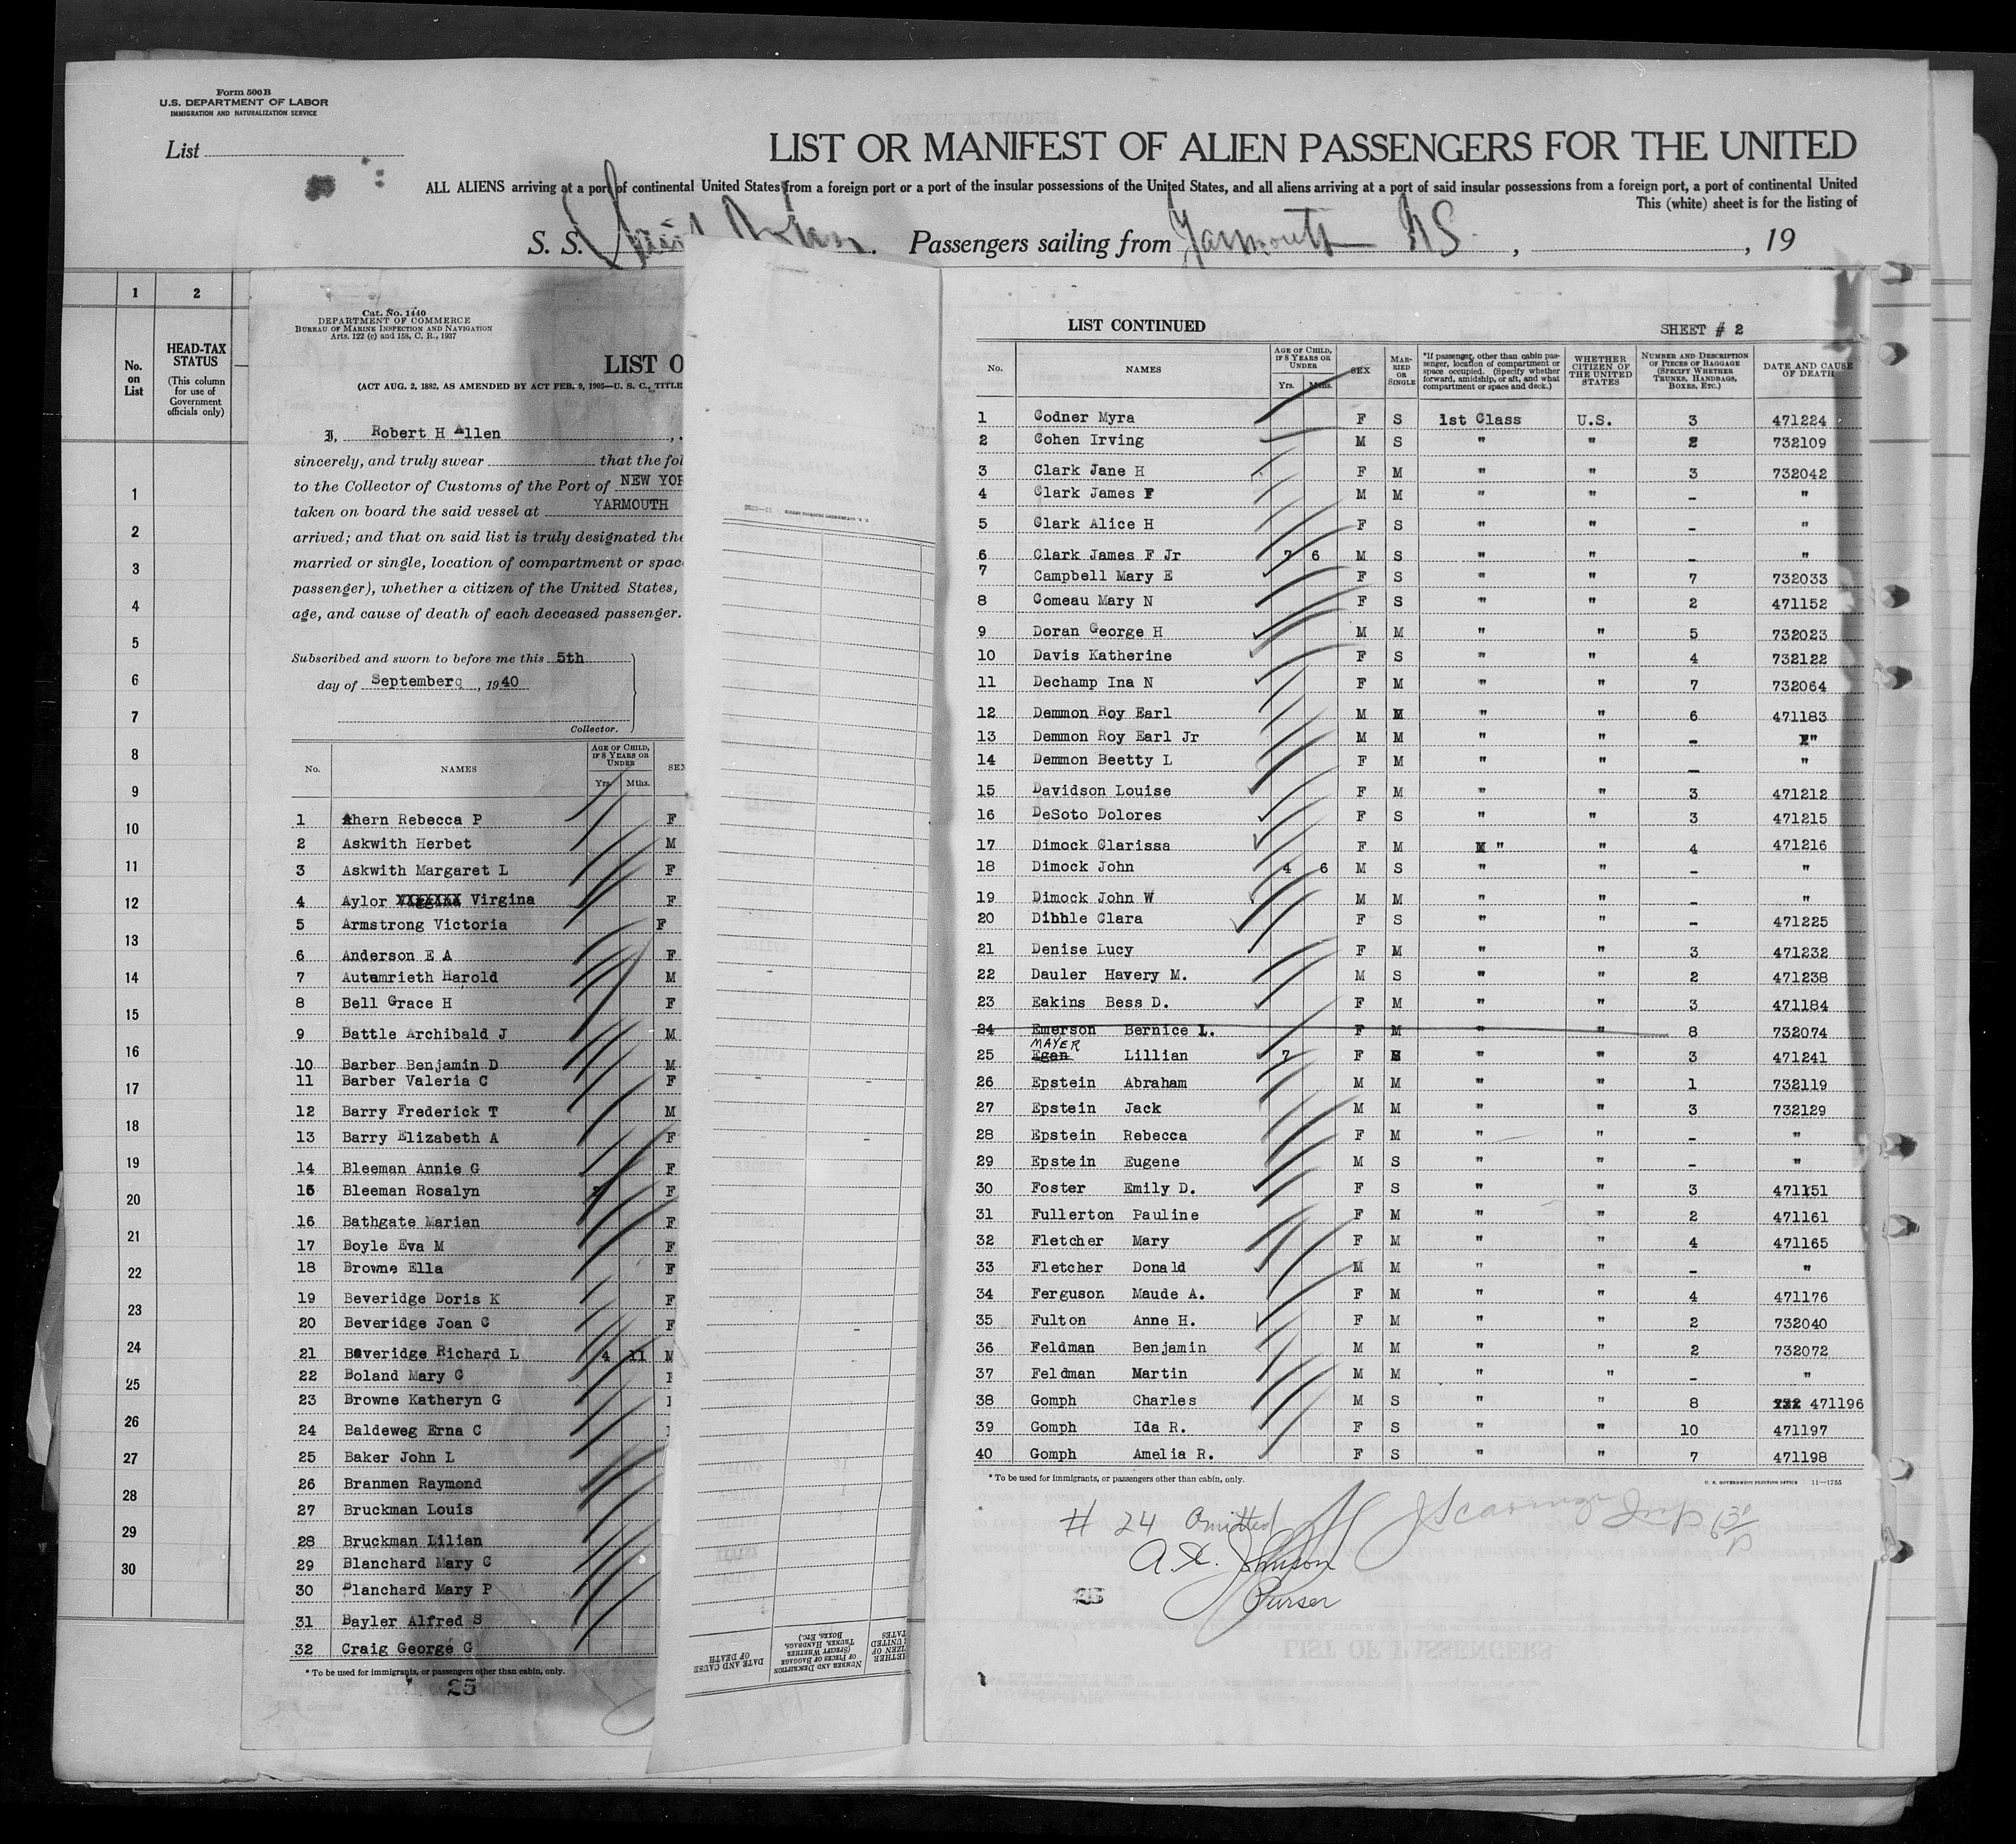 Form 500B
U.S. DEPARTMENT OF LABOR
IMMIGRATION AND NATURALIZATION SERVICE
List
LIST OR MANIFEST OF ALIEN PASSENGERS FOR THE UNITED
ALL ALIENS arriving at a port of continental United States from a foreign port or a port of the insular possessions of the United States, and all aliens arriving at a port of said insular possessions from a foreign port, a port of continental United
This (white) sheet is for the listing of
S. S. Passengers sailing from Yarmouth NS. , , 19
1 2
No. on List
HEAD-TAX STATUS
(This column for use of Government officials only)
1
2
3
4
5
6
7
8
9
10
11
12
13
14
15
16
17
18
19
20
21
22
23
24
25
26
27
28
29
30
Cat. No. 1440
DEPARTMENT OF COMMERCE
BUREAU OF MARINE INSPECTION AND NAVIGATION
Arts. 122 (c) and 158, C. R., 1937
LIST O
(ACT AUG. 2, 1882, AS AMENDED BY ACT FEB. 9, 1905—U. S. C., TITLE
I, Robert H Allen ,
sincerely, and truly swear that the fol
to the Collector of Customs of the Port of NEW YOR
taken on board the said vessel at YARMOUTH
arrived; and that on said list is truly designated the
married or single, location of compartment or spac
passenger), whether a citizen of the United States,
age, and cause of death of each deceased passenger.
Subscribed and sworn to before me this 5th
day of September , 1940
Collector.
No. NAMES AGE OF CHILD, IF 8 YEARS OR UNDER Yrs. Mths. SEX
1 Ahern Rebecca P F
2 Askwith Herbet M
3 Askwith Margaret L F
4 Aylor Virgina F
5 Armstrong Victoria F
6 Anderson E A F
7 Autemrieth Harold M
8 Bell Grace H F
9 Battle Archibald J M
10 Barber Benjamin D M
11 Barber Valeria C F
12 Barry Frederick T M
13 Barry Elizabeth A F
14 Bleeman Annie G F
15 Bleeman Rosalyn F
16 Bathgate Marian F
17 Boyle Eva M F
18 Browne Ella F
19 Beveridge Doris K F
20 Beveridge Joan C F
21 Beveridge Richard L 4 11 M
22 Boland Mary C
23 Browne Katheryn G
24 Baldeweg Erna C
25 Baker John L
26 Branmen Raymond
27 Bruckman Louis
28 Bruckman Lilian
29 Blanchard Mary C
30 Blanchard Mary P
31 Bayler Alfred S
32 Craig George G
* To be used for immigrants, or passengers other than cabin, only.
25
DATE AND CAUSE OF DEATH
NUMBER AND DESCRIPTION OF PIECES OF BAGGAGE (SPECIFY WHETHER TRUNKS, HANDBAGS, BOXES, ETC.)
LIST CONTINUED
SHEET # 2
No. NAMES AGE OF CHILD, IF 8 YEARS OR UNDER Yrs. Mths. SEX MARRIED OR SINGLE *If passenger, other than cabin passenger, location of compartment or space occupied. (Specify whether forward, amidship, or aft, and what compartment or space and deck.) WHETHER CITIZEN OF THE UNITED STATES NUMBER AND DESCRIPTION OF PIECES OF BAGGAGE (SPECIFY WHETHER TRUNKS, HANDBAGS, BOXES, ETC.) DATE AND CAUSE OF DEATH
1 Codner Myra F S 1st Class U.S. 3 471224
2 Cohen Irving M S " " 2 732109
3 Clark Jane H F M " " 3 732042
4 Clark James F M M " " - "
5 Clark Alice H F S " " - "
6 Clark James F Jr 7 6 M S " " - "
7 Campbell Mary E F S " " 7 732033
8 Comeau Mary N F S " " 2 471152
9 Doran George H M M " " 5 732023
10 Davis Katherine F S " " 4 732122
11 Dechamp Ina N F M " " 7 732064
12 Demmon Roy Earl M M " " 6 471183
13 Demmon Roy Earl Jr M M " " - "
14 Demmon Beetty L F M " " - "
15 Davidson Louise F M " " 3 471212
16 DeSoto Dolores F S " " 3 471215
17 Dimock Clarissa F M " " 4 471216
18 Dimock John 4 6 M S " " - "
19 Dimock John W M M " " - "
20 Dibble Clara F S " " - 471225
21 Denise Lucy F M " " 3 471232
22 Dauler Havery M. M S " " 2 471238
23 Eakins Bess D. F M " " 3 471184
24 Emerson Bernice L. F M " " 8 732074
MAYER
25 Egan Lillian 7 F " " 3 471241
26 Epstein Abraham M M " " 1 732119
27 Epstein Jack M M " " 3 732129
28 Epstein Rebecca F M " " - "
29 Epstein Eugene M S " " - "
30 Foster Emily D. F S " " 3 471151
31 Fullerton Pauline F M " " 2 471161
32 Fletcher Mary F M " " 4 471165
33 Fletcher Donald M M " " - "
34 Ferguson Maude A. F M " " 4 471176
35 Fulton Anne H. F M " " 2 732040
36 Feldman Benjamin M M " " 2 732072
37 Feldman Martin M M " " - "
38 Gomph Charles M S " " 8 471196
39 Gomph Ida R. F S " " 10 471197
40 Gomph Amelia R. F S " " 7 471198
* To be used for immigrants, or passengers other than cabin, only.
U. S. GOVERNMENT PRINTING OFFICE 11—1755
# 24 Omitted
Johnson
Purser
25
LIST OF PASSENGERS